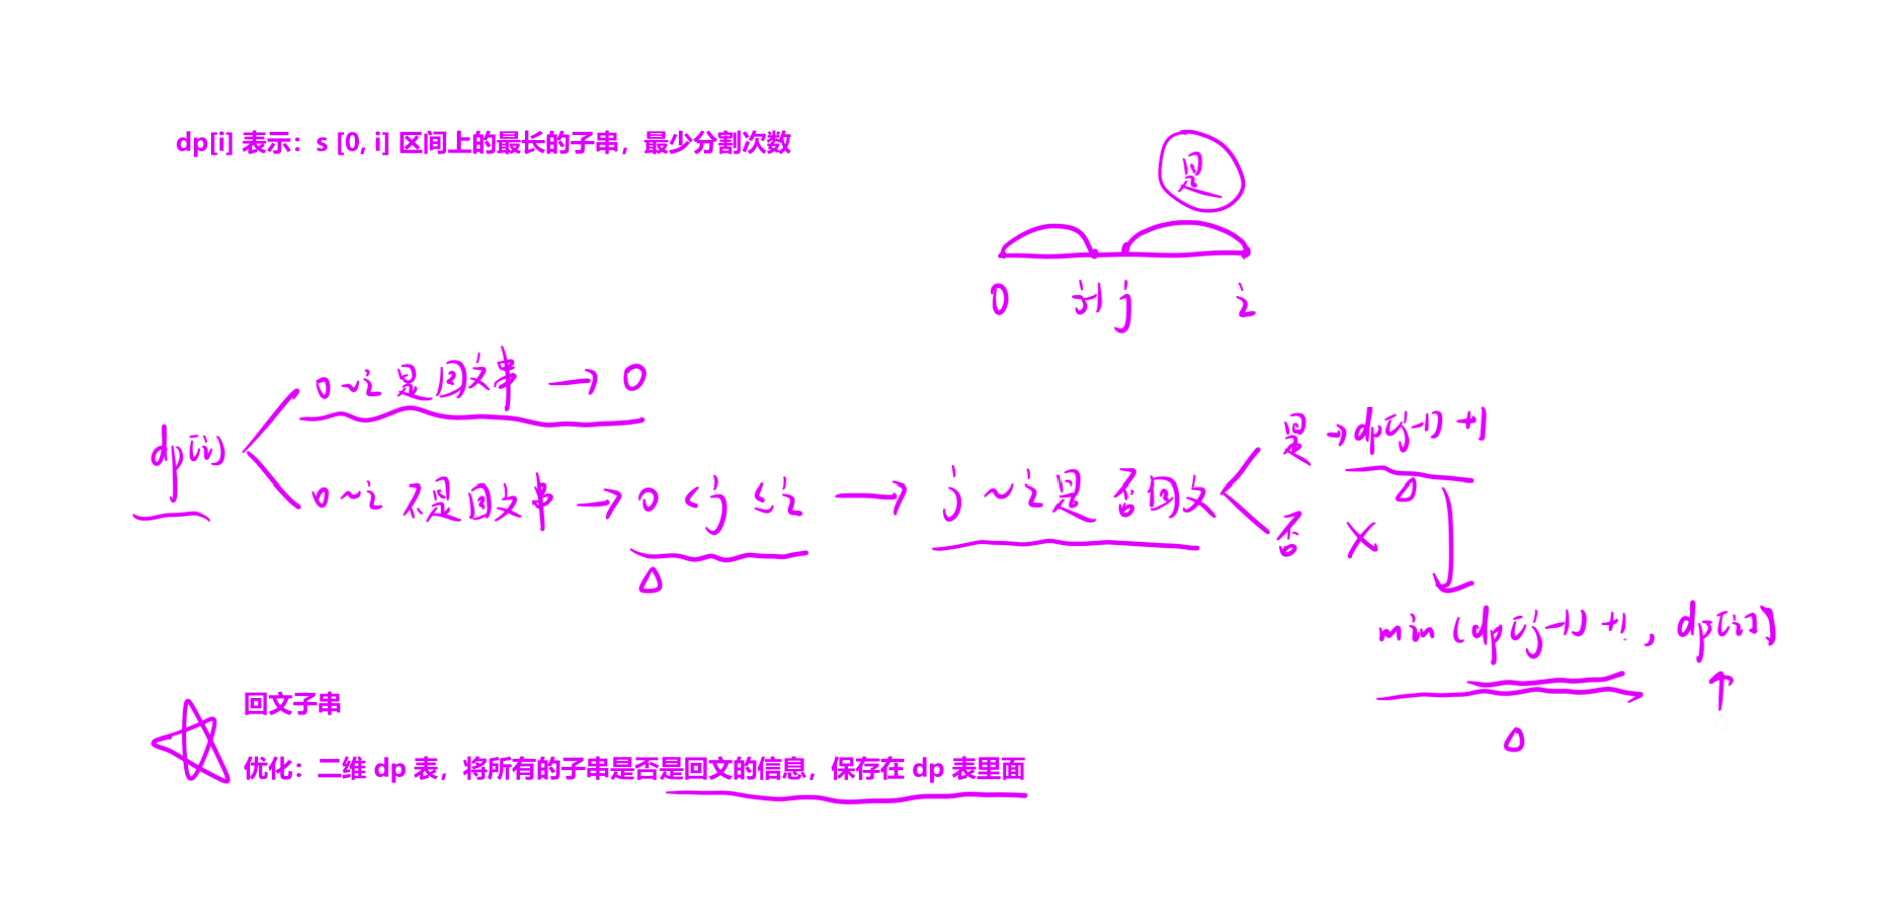 dp[i] 表示：s [0, i] 区间上的最长的子串，最少分割次数
是
0 j-1 j i
0~i 是回文串 → 0
dp[i]
0~i 不是回文串 → 0 < j ≤ i → j ~ i 是否回文
是 → dp[j-1] +1
否 ×
min (dp[j-1] +1, dp[i])
回文子串
优化：二维 dp 表，将所有的子串是否是回文的信息，保存在 dp 表里面